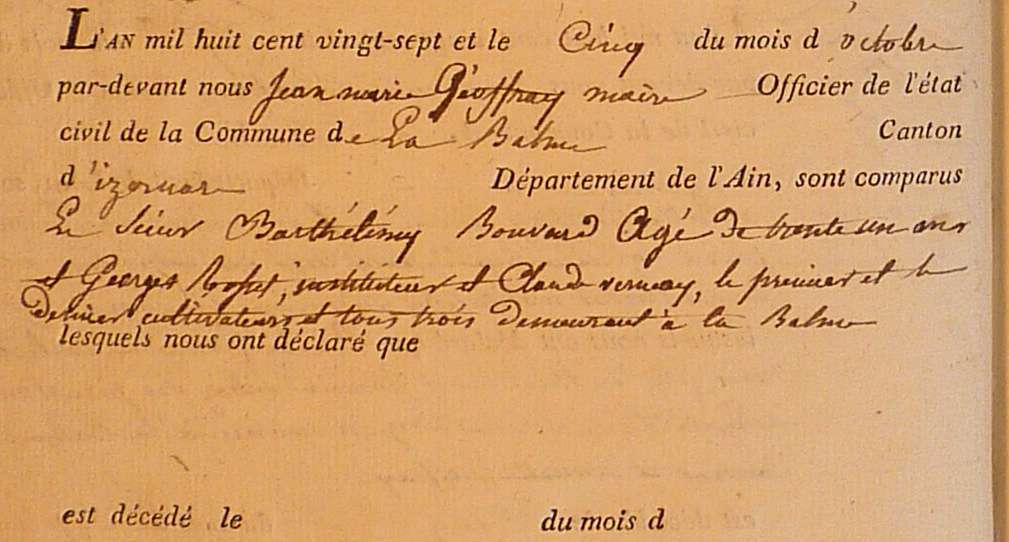 L'AN mil huit cent vingt-sept et le Cinq du mois d octobre
par-devant nous Jean marie Géoffray maire Officier de l'état
civil de la Commune de La Balme Canton
d'izernore Département de l'Ain, sont comparus
Le Sieur Barthélémy Bouvard Agé de trente un ans
et Georges Rosset, instituteur et Claude vernay, le premier et le
dernier cultivateurs et tous trois demeurant à la Balme
lesquels nous ont déclaré que
est décédé le du mois d